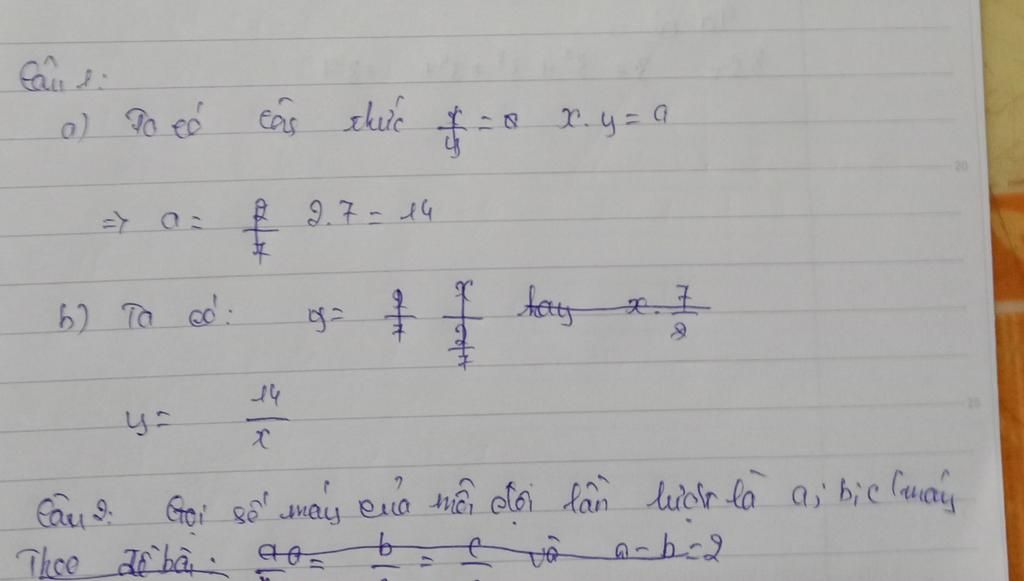 Câu 1:
a) Ta có công thức x/y = a x.y = a
=> a = 2/7 2.7 = 14
b) Ta có: y = 2/7 x/(2/7) hay x.7/2
y = 14/x
Câu 2: Gọi số máy của mỗi đội lần lượt là a; b; c (máy
Theo đề bài: = b = c và a-b=2